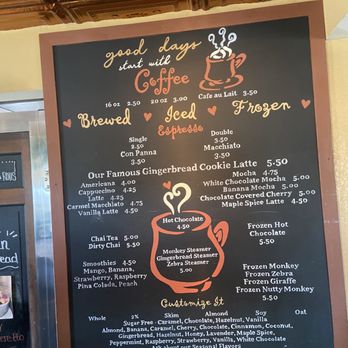 good days
start with
Coffee
16 oz 2.50 20 oz 3.00 Cafe au Lait 3.50
Brewed Iced Frozen
Espresso
Single Double
2.50 3.50
Con Panna Macchiato
3.50 3.50
Our Famous Gingerbread Cookie Latte 5.50
Americana 4.00 Mocha 4.75
Cappuccino 4.25 White Chocolate Mocha 5.00
Latte 4.25 Banana Mocha 5.00
Carmel Macchiato 4.75 Chocolate Covered Cherry 5.00
Vanilla Latte 4.50 Maple Spice Latte 4.50
Hot Chocolate
4.50
Chai Tea 5.00
Dirty Chai 5.50
Frozen Hot
Chocolate
5.50
Monkey Steamer
Gingerbread Steamer
Zebra Steamer
5.00
Smoothies 4.50
Mango, Banana,
Strawberry, Raspberry
Pina Colada, Peach
Frozen Monkey
Frozen Zebra
Frozen Giraffe
Frozen Nutty Monkey
5.50
Customize It
Whole 2% Skim Almond Soy Oat
Sugar Free - Caramel, Chocolate, Hazelnut, Vanilla
Almond, Banana, Caramel, Cherry, Chocolate, Cinnamon, Coconut,
Gingerbread, Hazelnut, Honey, Lavender, Maple Spice,
Peppermint, Raspberry, Strawberry, Vanilla, White Chocolate
Ask about our Seasonal Flavors